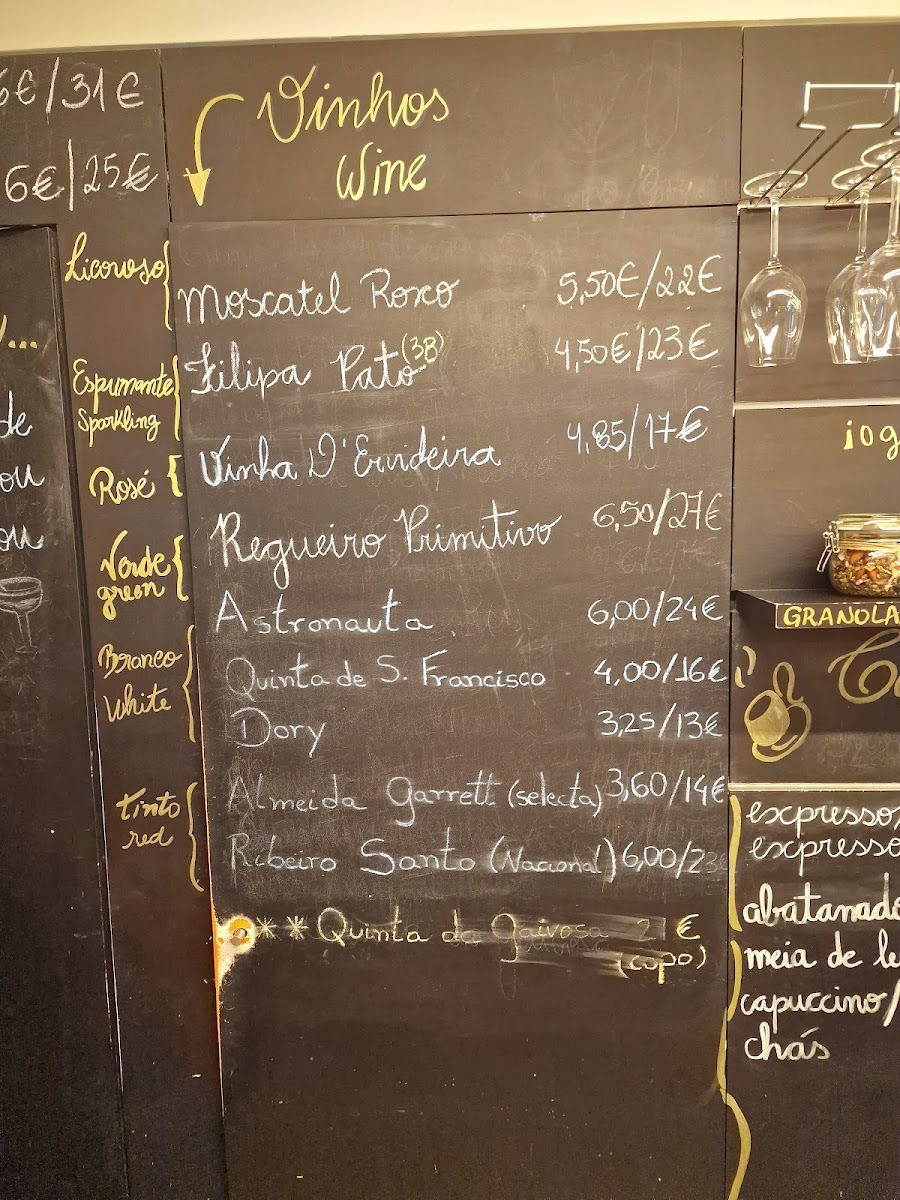 6€/31€
6€/25€
Vinhos
Wine
Licoroso
Moscatel Roxo 5,50€/22€
Espumante
Sparkling
Filipa Pato (3B) 4,50€/23€
Rosé
Vinha D'Ervideira 4,85/17€
Verde
green
Regueiro Primitivo 6,50/27€
Branco
White
Astronauta 6,00/24€
Quinta de S. Francisco 4,00/16€
Dory 3,25/13€
tinto
red
Almeida Garrett (selecta) 3,60/14€
Ribeiro Santo (Nacional) 6,00/23€
** Quinta da Gaivosa €
(copo)
de
ou
ou
iog
GRANOLA
expresso/
expresso
abatanado
meia de le
capuccino/
chás